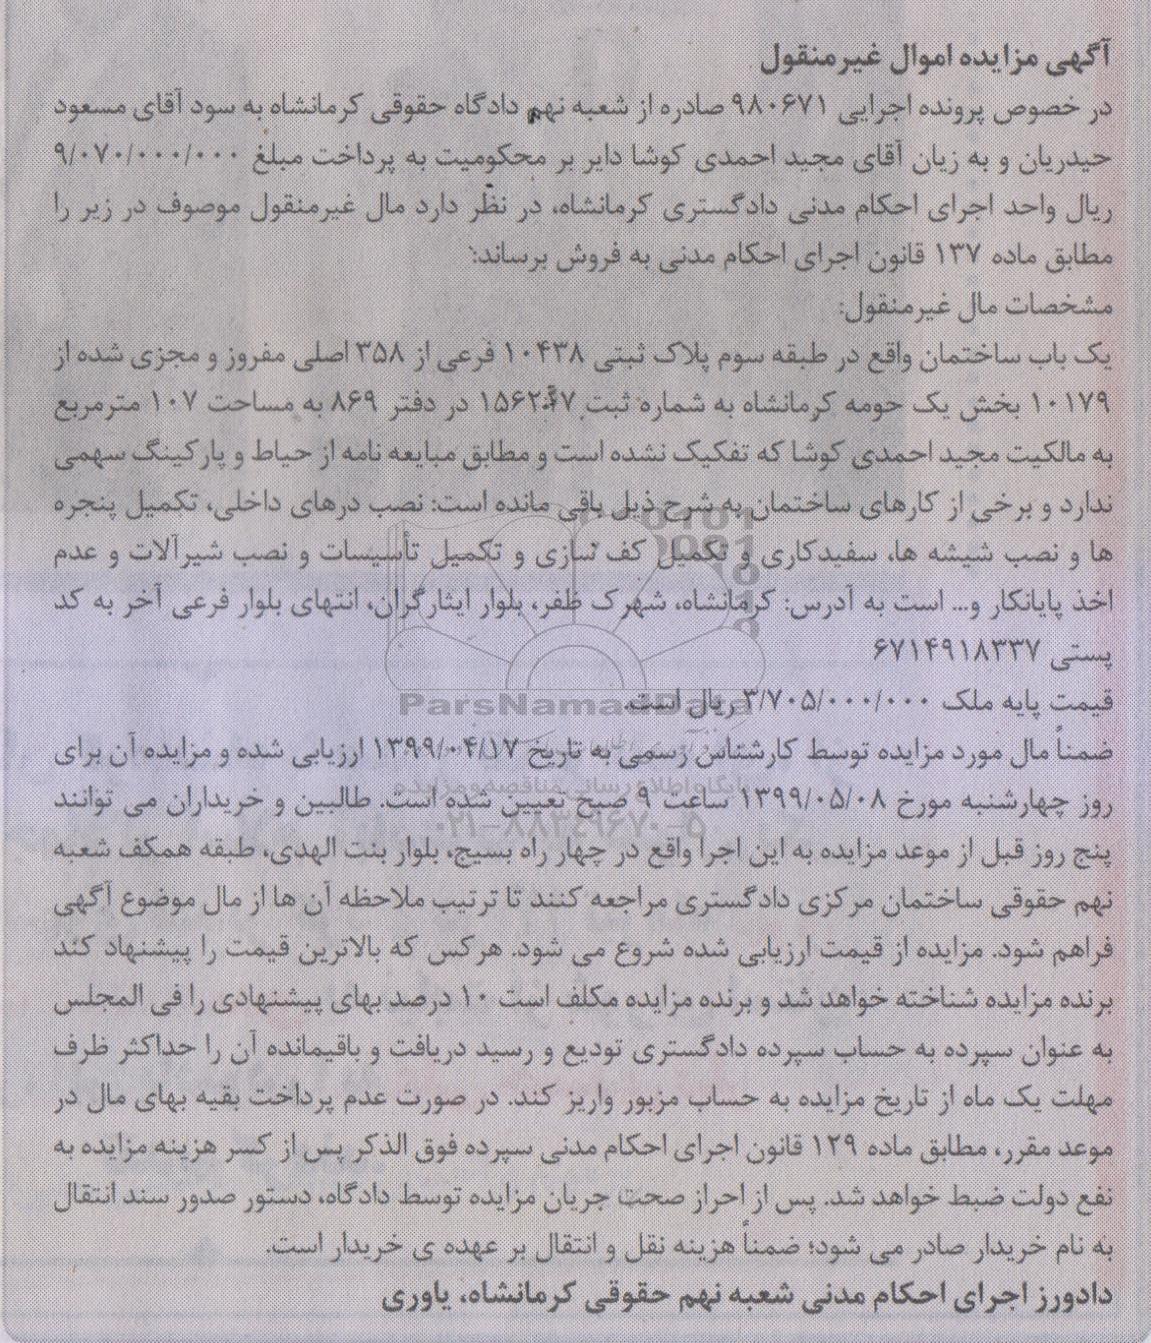 آگهی مزایده اموال غیرمنقول
در خصوص پرونده اجرایی ۹۸۰۶۷۱ صادره از شعبه نهم دادگاه حقوقی کرمانشاه به سود آقای مسعود
حیدریان و به زیان آقای مجید احمدی کوشا دایر بر محکومیت به پرداخت مبلغ ۹/۰۷۰/۰۰۰/۰۰۰
ریال واحد اجرای احکام مدنی دادگستری کرمانشاه، در نظر دارد مال غیرمنقول موصوف در زیر را
مطابق ماده ۱۳۷ قانون اجرای احکام مدنی به فروش برساند:
مشخصات مال غیرمنقول:
یک باب ساختمان واقع در طبقه سوم پلاک ثبتی ۱۰۴۳۸ فرعی از ۳۵۸ اصلی مفروز و مجزی شده از
۱۰۱۷۹ بخش یک حومه کرمانشاه به شماره ثبت در دفتر ۸۶۹ به مساحت ۱۰۷ مترمربع
به مالکیت مجید احمدی کوشا که تفکیک نشده است و مطابق مبایعه نامه از حیاط و پارکینگ سهمی
ندارد و برخی از کارهای ساختمان به شرح ذیل باقی مانده است: نصب درهای داخلی، تکمیل پنجره
ها و نصب شیشه ها، سفیدکاری و تکمیل کف سازی و تکمیل تأسیسات و نصب شیرآلات و عدم
اخذ پایانکار و... است به آدرس: کرمانشاه، شهرک ظفر، بلوار ایثارگران، انتهای بلوار فرعی آخر به کد
پستی ۶۷۱۴۹۱۸۳۳۷
قیمت پایه ملک ۳/۷۰۵/۰۰۰/۰۰۰ ریال است.
ضمناً مال مورد مزایده توسط کارشناس رسمی به تاریخ ۱۳۹۹/۰۴/۱۷ ارزیابی شده و مزایده آن برای
روز چهارشنبه مورخ ۱۳۹۹/۰۵/۰۸ ساعت ۹ صبح تعیین شده است. طالبین و خریداران می توانند
پنج روز قبل از موعد مزایده به این اجرا واقع در چهار راه بسیج، بلوار بنت الهدی، طبقه همکف شعبه
نهم حقوقی ساختمان مرکزی دادگستری مراجعه کنند تا ترتیب ملاحظه آن ها از مال موضوع آگهی
فراهم شود. مزایده از قیمت ارزیابی شده شروع می شود. هرکس که بالاترین قیمت را پیشنهاد کند
برنده مزایده شناخته خواهد شد و برنده مزایده مکلف است ۱۰ درصد بهای پیشنهادی را فی المجلس
به عنوان سپرده به حساب سپرده دادگستری تودیع و رسید دریافت و باقیمانده آن را حداکثر ظرف
مهلت یک ماه از تاریخ مزایده به حساب مزبور واریز کند. در صورت عدم پرداخت بقیه بهای مال در
موعد مقرر، مطابق ماده ۱۲۹ قانون اجرای احکام مدنی سپرده فوق الذکر پس از کسر هزینه مزایده به
نفع دولت ضبط خواهد شد. پس از احراز صحت جریان مزایده توسط دادگاه، دستور صدور سند انتقال
به نام خریدار صادر می شود؛ ضمناً هزینه نقل و انتقال بر عهده ی خریدار است.
دادورز اجرای احکام مدنی شعبه نهم حقوقی کرمانشاه، یاوری
ParsNamadData
پایگاه اطلاع رسانی مناقصه و مزایده
۰۲۱-۸۸۳۴۹۶۷۰-۵